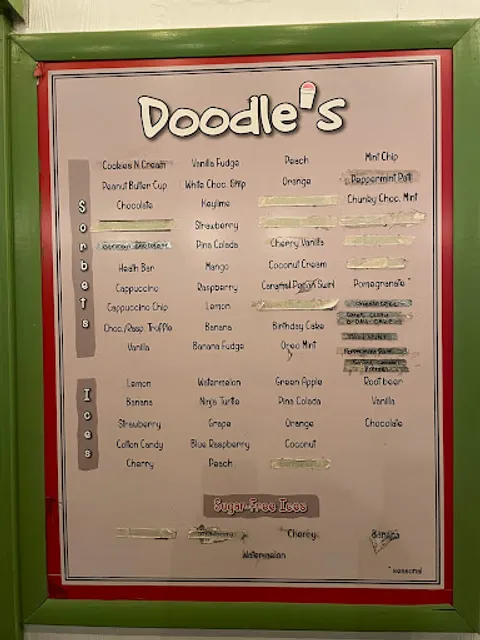 Doodle's
Sorbets
Cookies N Cream Vanilla Fudge Peach Mint Chip
Peanut Butter Cup White Choc. Chip Orange Peppermint Patti
Chocolate Keylime Chunky Choc. Mint
Strawberry
Pina Colada Cherry Vanilla
Heath Bar Mango Coconut Cream
Cappuccino Raspberry Caramel Swirl Pomegranate *
Cappuccino Chip Lemon
Choc./Rasp. Truffle Banana Birthday Cake
Vanilla Banana Fudge Oreo Mint
Ices
Lemon Watermelon Green Apple Root beer
Banana Ninja Turtle Pina Colada Vanilla
Strawberry Grape Orange Chocolate
Cotton Candy Blue Raspberry Coconut
Cherry Peach
Sugar-Free Ices
Cherry Banana
Watermelon
* seasonal